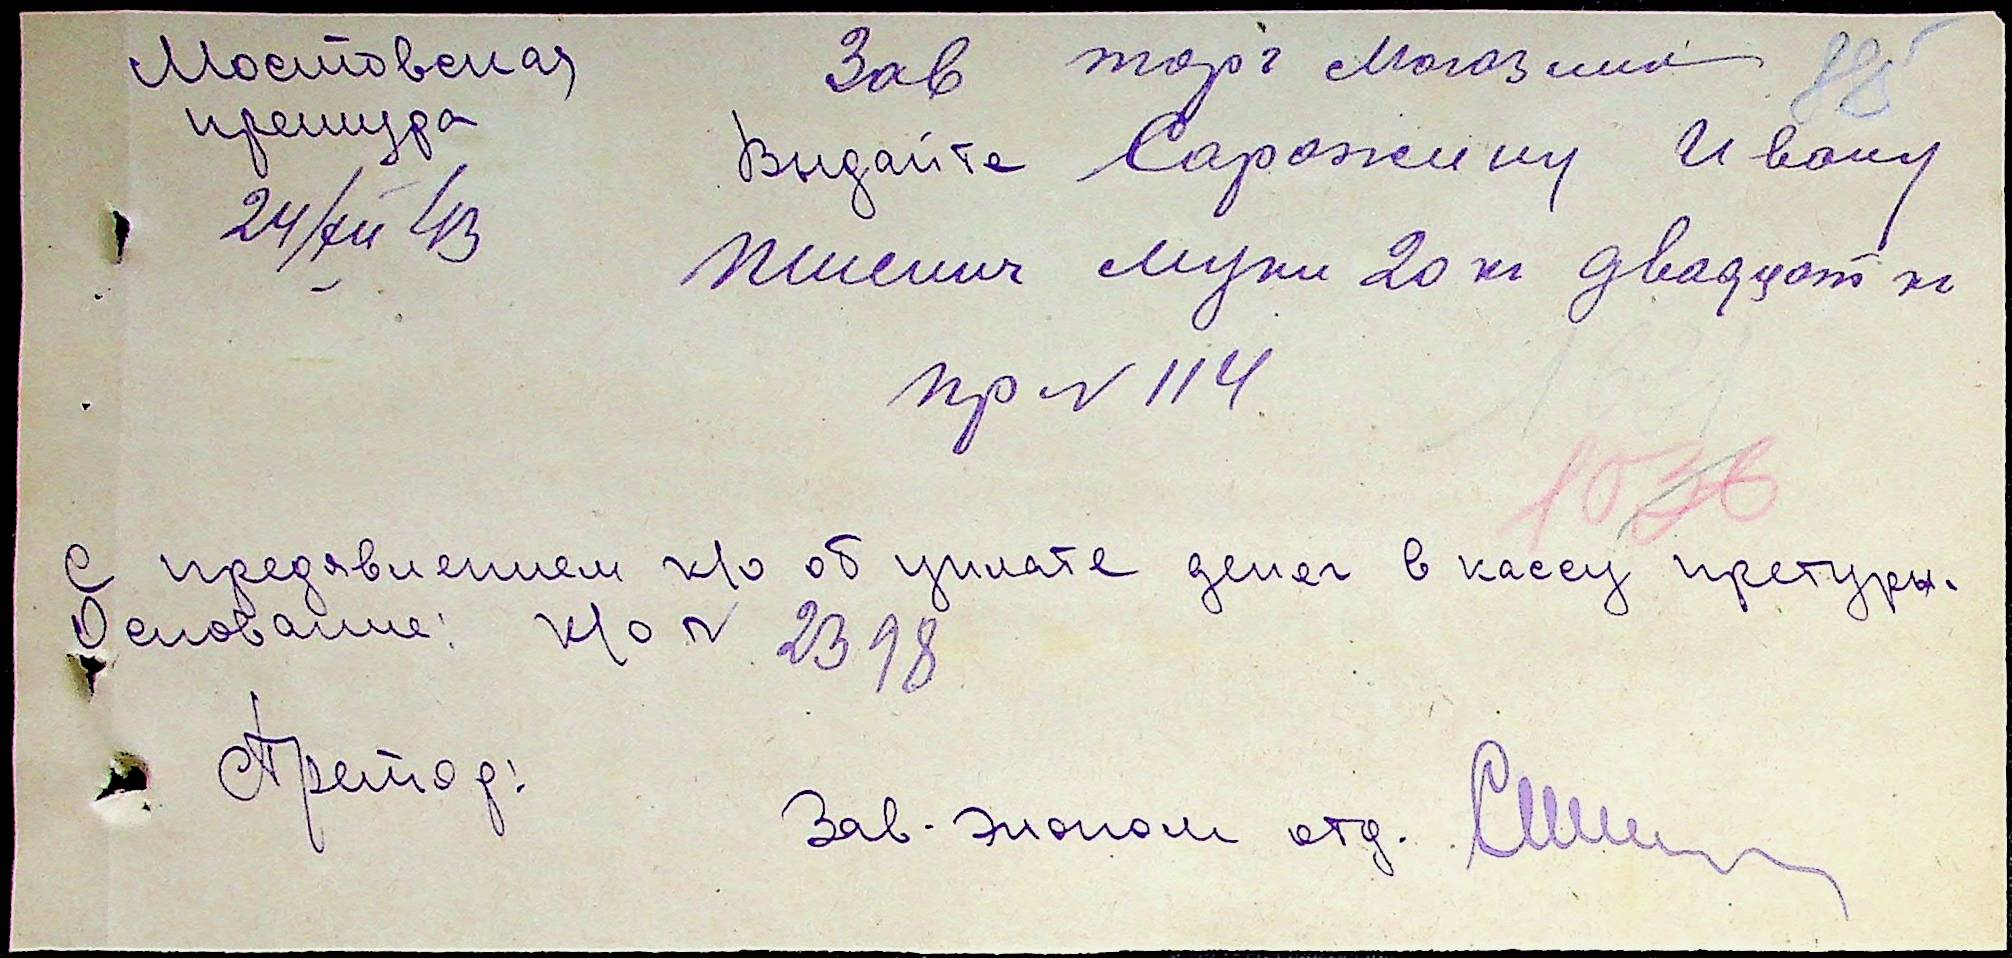 Мостовская
претура
24/XII 43
Зав торг Магазина
88
Выдайте Сарожину Ивану
Пшенич муки 20 кг двадцат кг
пр № 114
1036
С предявлением к/о об уплате денег в кассу претуры.
Основание: к/о № 2398
Претор:
Зав. эконом отд.